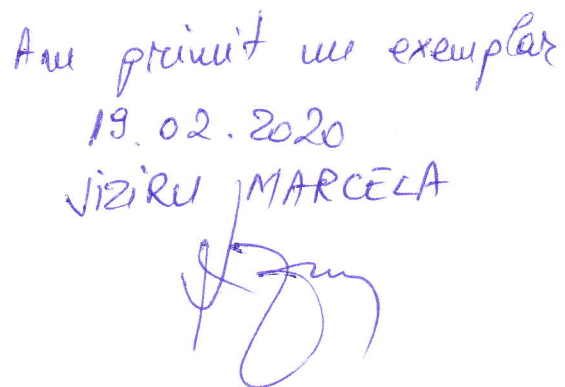 Am primit un exemplar
19.02.2020
VIZIRU MARCELA